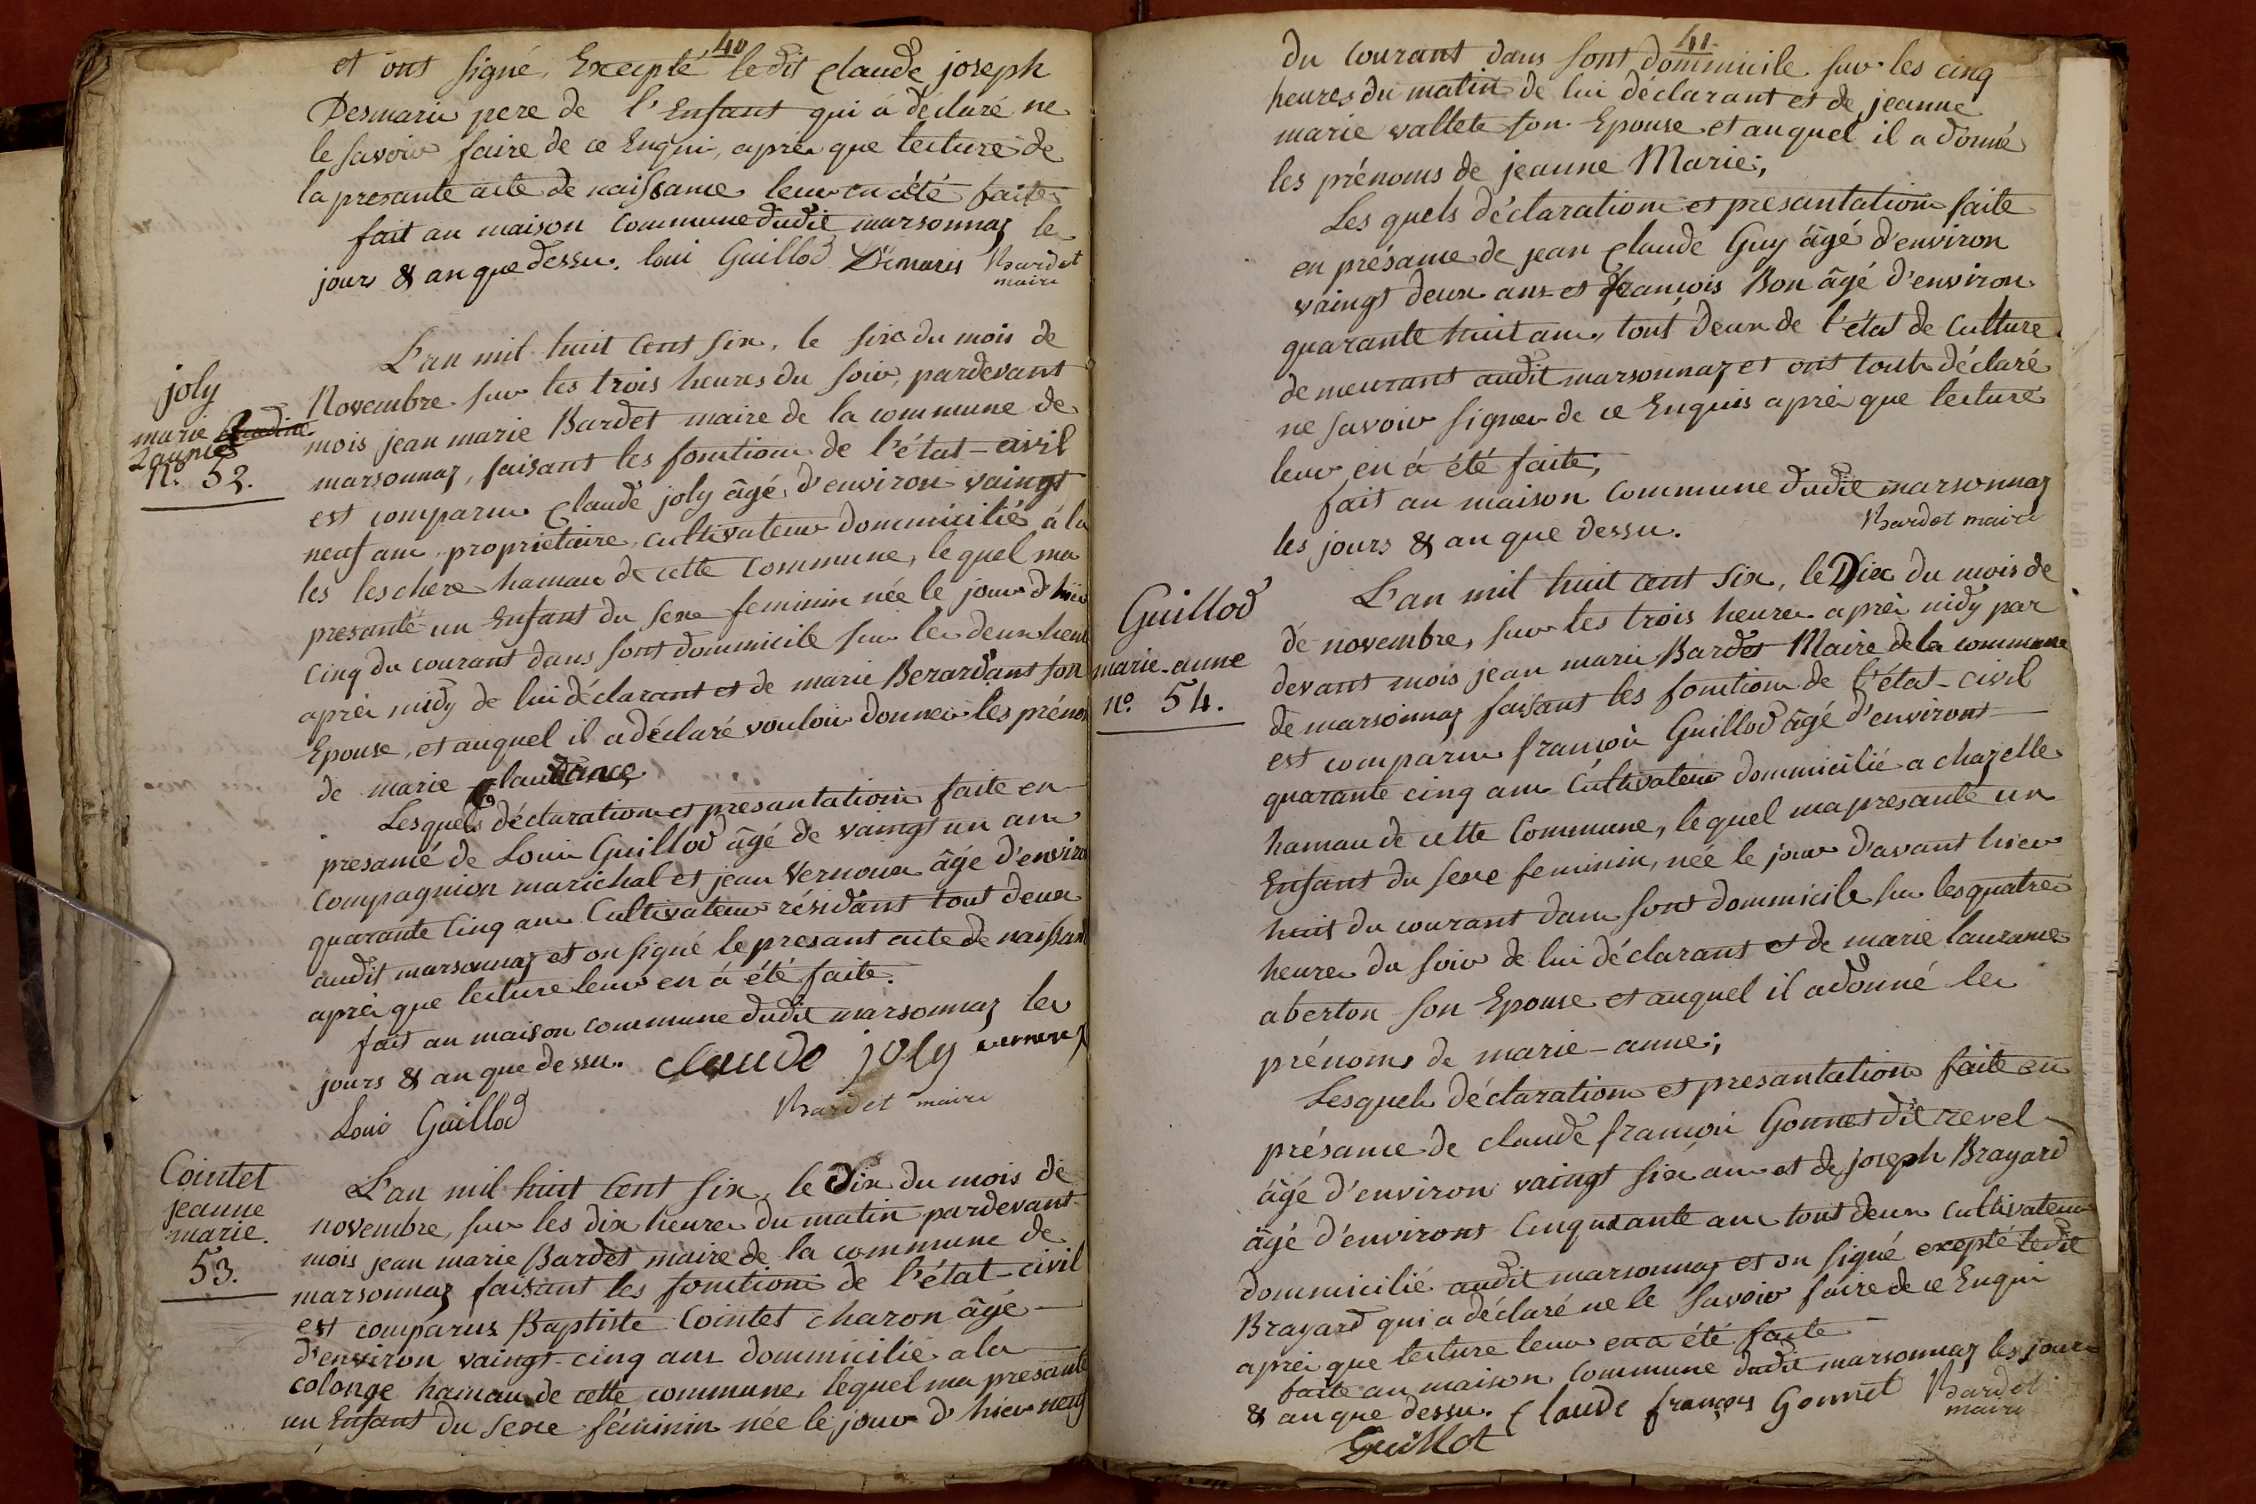 40
et ont signé, Excepté ledit Claude joseph
Desmaris pere de l'Enfant qui à déclaré ne
le savoir faire de ce Enqui, après que lecture de
la presante acte de naissance leur en été faite
fait au maison commune dudit marsonnaz le
jours & an que dessu. loui Guillod Démaris Bardet
maire
joly
marie Claudine
Laurnce
N.º 52.
L'an mil huit Cent six, le six du mois de
Novembre sur les trois heures du soir, pardevant
mois jean marie Bardet maire de la commune de
marsonnaz, faisant les fonctions de l'état-civil
est comparu Claude joly âgé d'environ vaingt
neuf ans, propriétaire, cultivateur dommicilié à la
les leschere hamau de cette commune, le quel ma
presanté un Enfant du sexe feminin née le jour d'hier
cinq du courant dans sont dommicile sur les deux heure
après midy de lui déclarant et de marie Berardant son
Epouse, et auquel il a déclaré vouloir donner les prénom
de marie
Lesquels déclaration et presantation faite en
presance de Louis Guillod âgé de vaingt un ans
compagnion marichal et jean Vernoux âgé d'environ
quarante Cinq ans Cultivateur résidant tout deux
audit marsonnaz et on signé le presant acte de naissance
après que lecture leur en á été faite.
fait au maison commune dudit marsonnaz les
jours & an que dessu. claude joly vernoux
Loui Guillod Bardet maire
Cointet
jeanne
marie.
53.
L'an mil huit Cent six, le Dix du mois de
novembre, sur les dix heures du matin pardevant
mois jean marie Bardet maire de la commune de
marsonnaz faisant les fonctions de l'état-civil
est comparus Baptiste Cointet charon âgé
d'environ vaingt-cinq ans dommicilié à la
colonge hamau de cette commune, lequel ma presanté
un Enfant du sexe féminin née le jour d'hier neuf
41.
du courant dans sont dommicile sur les cinq
heures du matin de lui déclarant et de jeanne
marie vallete son Epouse et auquel il a donné
les prénoms de jeanne Marie;
Les quels déclaration et presantation faite
en présance de jean Claude Guy âgé d'environ
vaingt deux ans et françois Bon âgé d'environ
quarante huit ans, tout deux de l'état de Culture
demeurant audit marsonnaz et ont touts déclaré
ne savoir signer de ce Enquis après que lecture
leur en á été faite;
fait au maison commune dudit marsonnaz
les jours & an que dessu. Bardet maire
Guillod
marie-anne
nº. 54.
L'an mil huit cent six, le Dix du mois de
dé novembre, sur les trois heures après midy par
devant mois jean marie Bardet Maire de la commune
de marsonnaz faisant les fonctions de l'état-civil
est comparu françois Guillod âgé d'environt
quarante cinq ans Cultivateur dommicilié a chazelle
hamau de cette Commune, lequel ma presanté un
Enfant du sexe feminin, née le jour d'avant hier
huit du courant dans sont dommicile sur les quatre
heures du soir de lui déclarant et de marie laurance
aberton son Epouse et auquel il a donné les
prénoms de marie-anne;
Lesquels déclaration et presantation faite en
présance de claude françois Gonnet dit revel
âgé d'environ vaingt six ans et de joseph Brayard
âgé d'environt Cinquante ans tout deux cultivateur
dommicilié audit marsonnaz et on signé excepté ledit
Brayard qui a déclaré ne le savoir faire de ce Enqui
après que lecture leur en a été faite
faite au maison commune dudit marsonnaz les jours
& an que dessu. Claude françois Gonnet Bardet
maire
Guillot